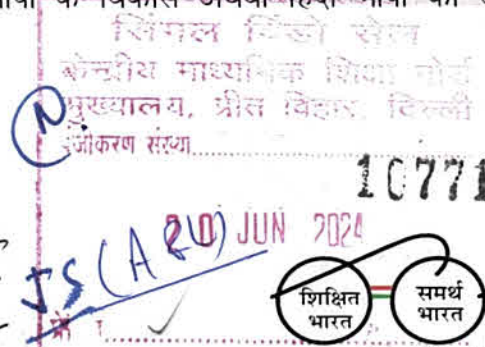 सिंगल विंडो सेल
केन्द्रीय माध्यमिक शिक्षा बोर्ड
मुख्यालय, प्रीत विहार, दिल्ली
पंजीकरण संख्या..............
10771
20 JUN 2024
JS (A&U)
शिक्षित भारत
समर्थ भारत